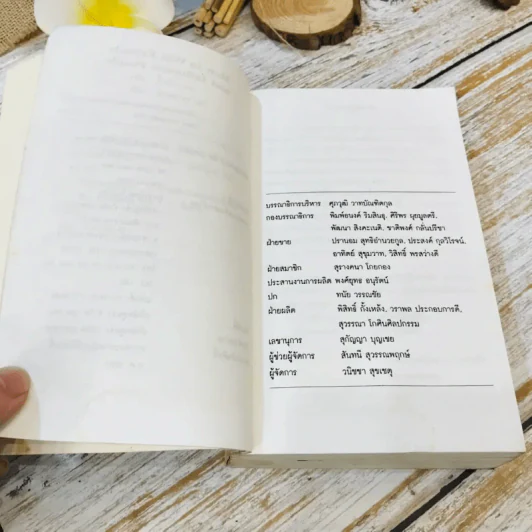 บรรณาธิการบริหาร ศุภวุฒิ วาทบัณฑิตกุล
กองบรรณาธิการ พิมพ์อนงค์ ริมสินธุ, ศิริพร นุยมูลศรี,
พัฒนา สิงคะเนติ, ชาติพงศ์ กลั่นปรีชา
ฝ่ายขาย ปรานอม สุทธิอำนวยกูล, ประสงค์ กุลวิโรจน์,
อาทิตย์ สุขุมวาท, วิสิทธิ์ พรสว่างดี
ฝ่ายสมาชิก สุรางคนา โกยกอง
ประสานงานการผลิต พงศ์ยุทธ อนุรัตน์
ปก ทนัย วรรณชัย
ฝ่ายผลิต พิสิทธิ์ กั้งเหล็ง, วราพล ประกอบการดี,
สุวรรณา โกศินศิลปกรรม
เลขานุการ สุกัญญา บุญเชย
ผู้ช่วยผู้จัดการ สันทนี สุวรรณพฤกษ์
ผู้จัดการ วนิชชา สุขเชตุ